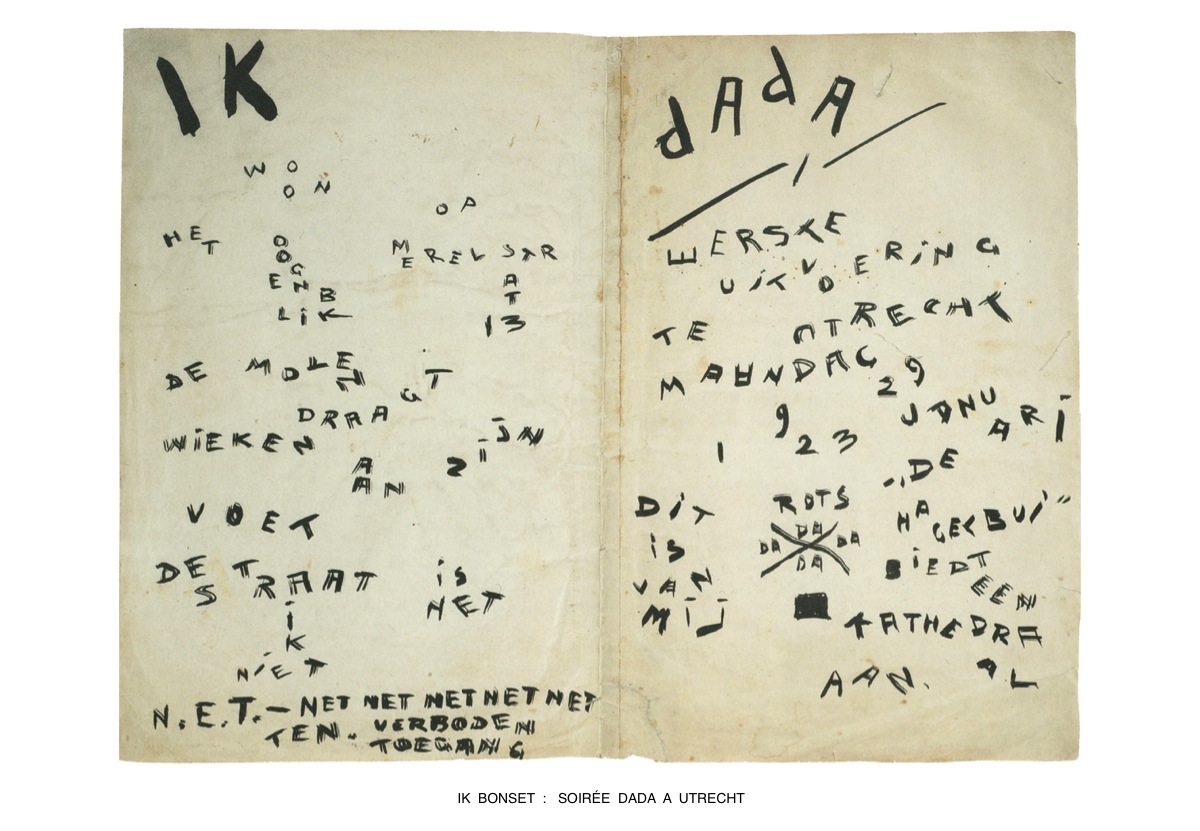 IK
WOON OP
HET OOGENBLIK MERELSTRAAT 13
DE MOLEN DRAAGT
WIEKEN AAN ZIJN
VOET
DE STRAAT IS NET
IK
NIET
N.E.T.— NET NET NET NET NET
TEN. VERBODEN
TOEGANG
dAdA
EERSTE
UITVOERING
TE UTRECHT
MAANDAG 29
JANUARI
1923
DIT
IS
VAN
MIJ
ROTS
DADA
DA DA
DADA
„DE
HAGELBUI”
BIEDT
EEN
KATHEDRAAL
AAN.
IK BONSET : SOIRÉE DADA A UTRECHT